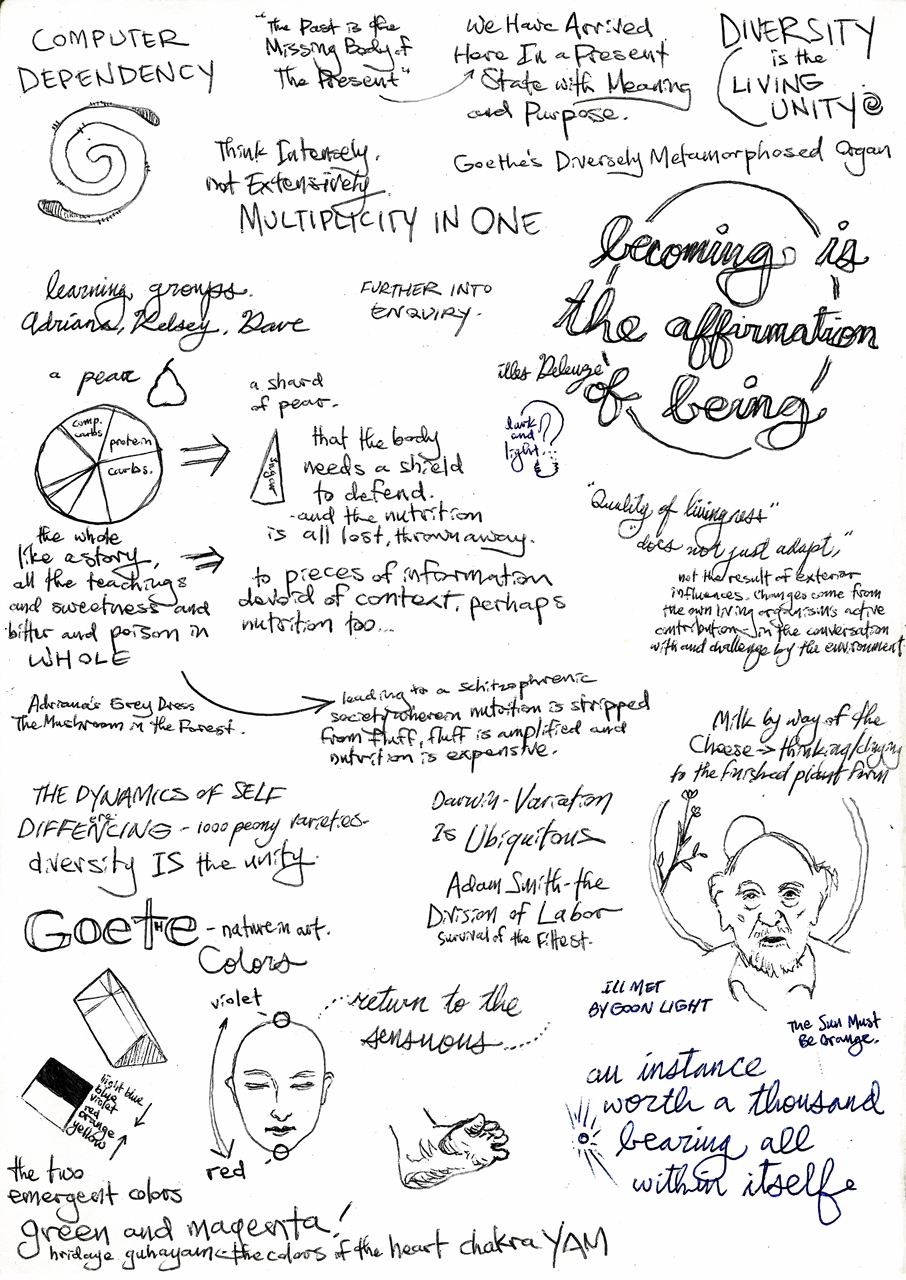 COMPUTER
DEPENDENCY
"The Past is the
Missing Body of
The Present"
We Have Arrived
Here In a Present
State with Meaning
and Purpose.
DIVERSITY
is the
LIVING
UNITY
Think Intensely,
not Extensively
Goethe's Diversely Metamorphosed Organ
MULTIPLICITY IN ONE
becoming is
the affirmation
of being
learning groups.
Adriana, Kelsey, Dave
FURTHER INTO
ENQUIRY.
illes Deleuze
a pear
comp.
carbs
protein
carbs.
a shard
of pear.
sugar
that the body
needs a shield
to defend.
-and the nutrition
is all lost, thrown away.
dark
and
light...
the whole
like a story,
all the teachings
and sweetness and
bitter and poison in
WHOLE
to pieces of information
devoid of context, perhaps
nutrition too...
"Quality of livingness"
"does not just adapt,"
not the result of exterior
influences. Changes come from
the own living organism's active
contribution in the conversation
with and challenge by the environment
Adriana's Grey Dress
The Mushroom in the Forest.
leading to a schitzophrenic
society wherein nutrition is stripped
from fluff, fluff is amplified and
nutrition is expensive.
Milk by way of the
Cheese -> thinking/
to the finished plant form
THE DYNAMICS OF SELF
DIFFERENCING - 1000 peony varieties-
diversity IS the unity.
Darwin - Variation
Is Ubiquitous
Adam Smith - the
Division of Labor
Survival of the Fittest.
GoetHe - nature in art.
Colors
violet
red
return to the
sensuous
ILL MET
BY GOON LIGHT
The Sun Must
Be Orange.
an instance
worth a thousand
bearing all
within itself
light blue
blue
violet
red
orange
yellow
the two
emergent colors
green and magenta!
hridaye guhayam the colors of the heart chakra YAM